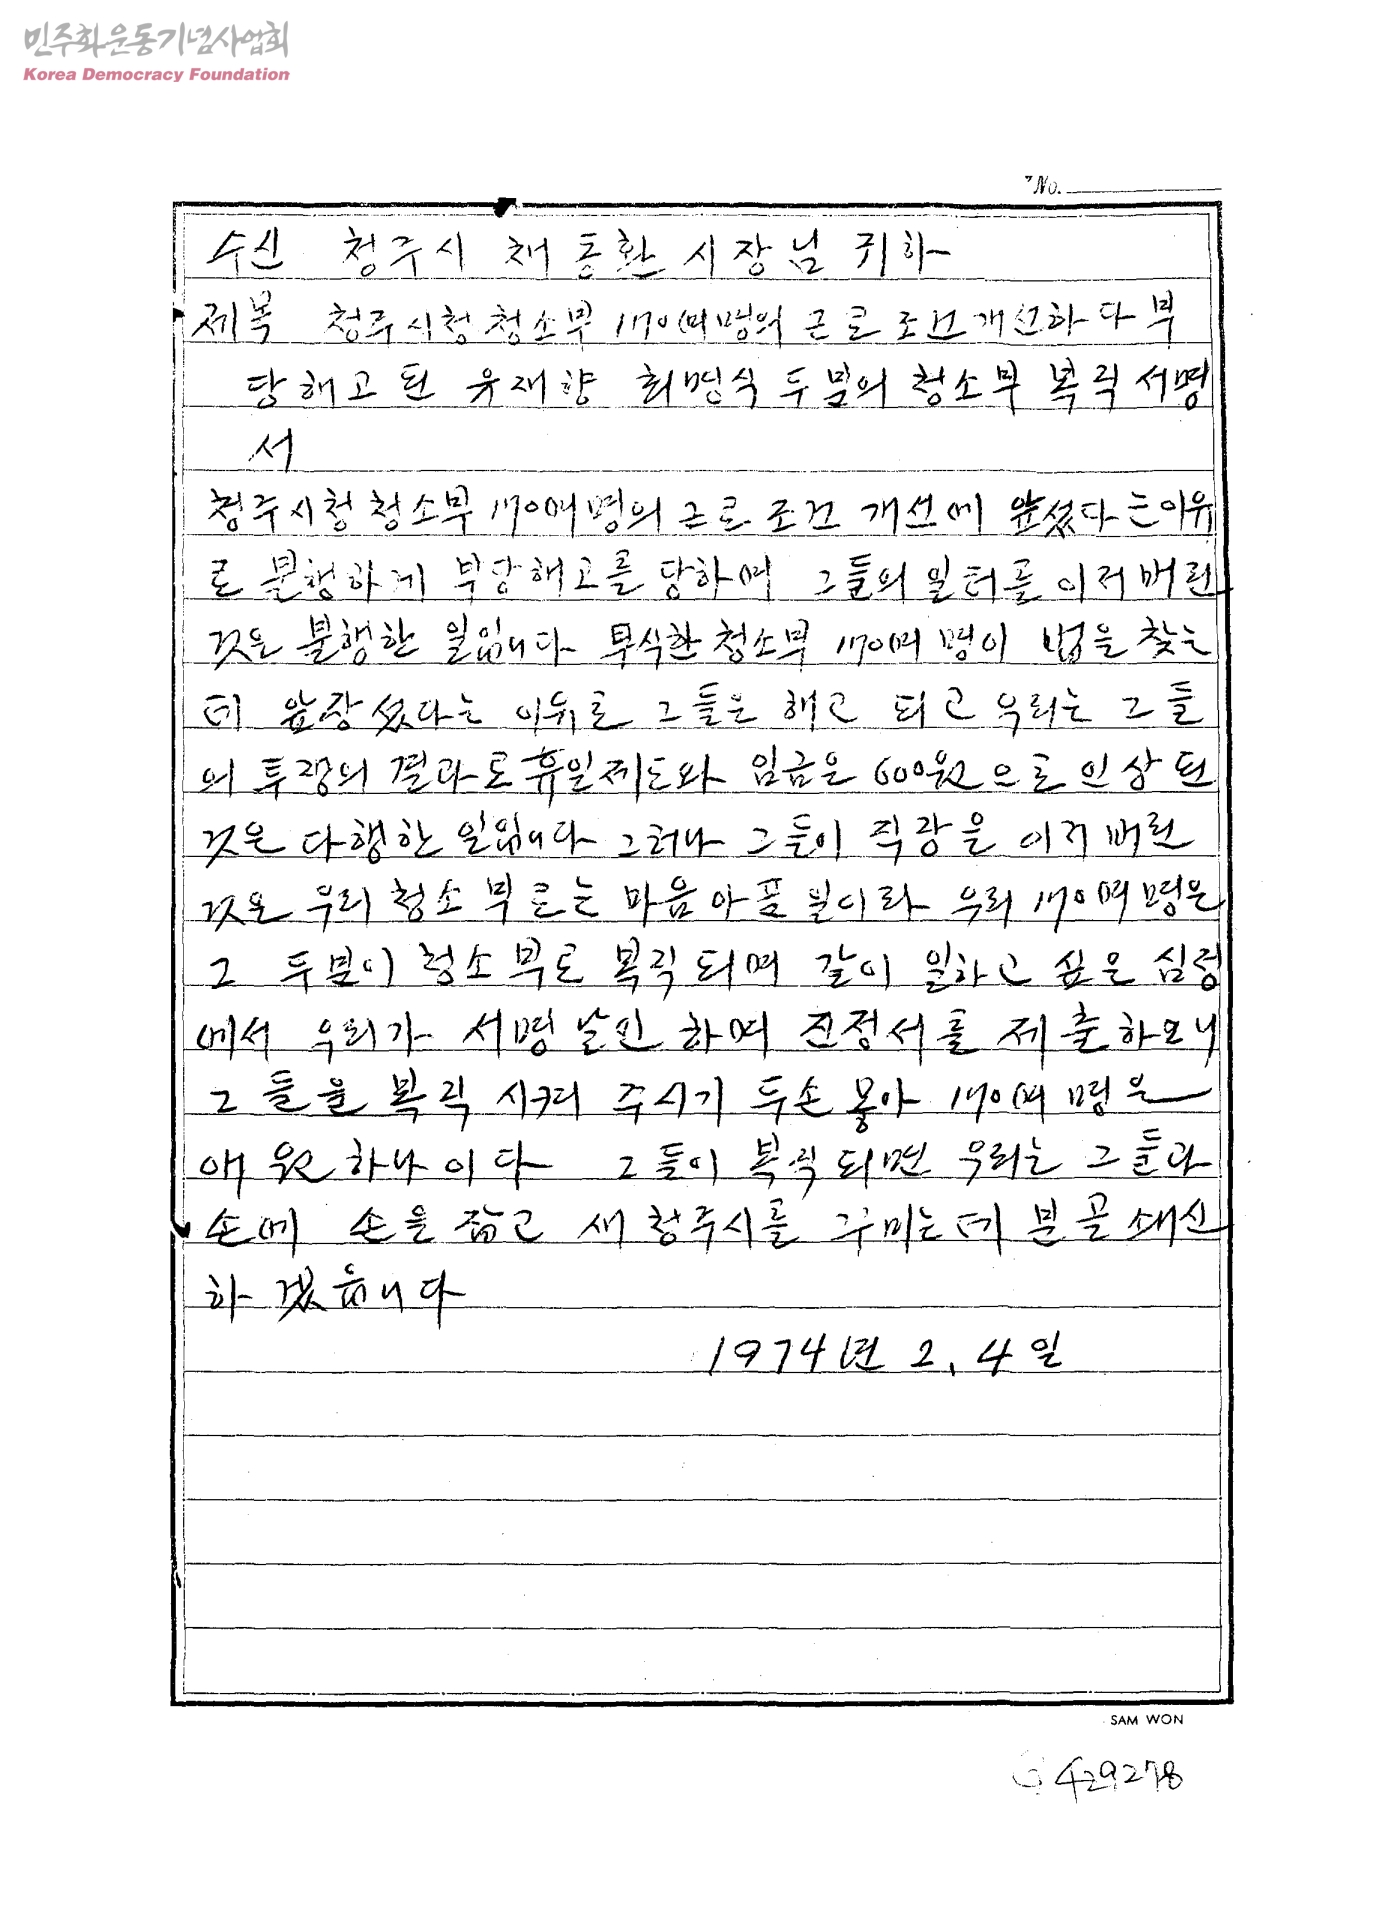 민주화운동기념사업회
Korea Democracy Foundation
No.
수신 청주시 채동환 시장님 귀하
제목 청주시청 청소부 170여명의 근로조건개선하다 부
당해고된 유재향 최명식 두분의 청소부 복직 서명
서
청주시청 청소부 170여명의 근로조건 개선에 앞섰다는이유
로 불행하게 부당해고를 당하며 그들의 일터를 이저버린
것은 불행한 일입니다 무식한 청소부 170여명이 법을 찾는
데 앞장섰다는 이유로 그들은 해고 되고 우리는 그들
의 투쟁의 결과로 휴일제도와 임금은 600원으로 인상된
것은 다행한 일입니다 그러나 그들이 직장을 이저버린
것은 우리 청소부로는 마음아픈 일이라 우리 170여명은
그 두분이 청소부로 복직되며 같이 일하고 싶은 심정
에서 우리가 서명날인하며 진정서를 제출하오니
그들을 복직시켜 주시기 두손 몽아 170여명은
애원하나이다 그들이 복직되면 우리는 그들과
손에 손을 잡고 새 청주시를 꾸미는데 분골쇄신
하겠읍니다
1974년 2. 4일
SAM WON
429278